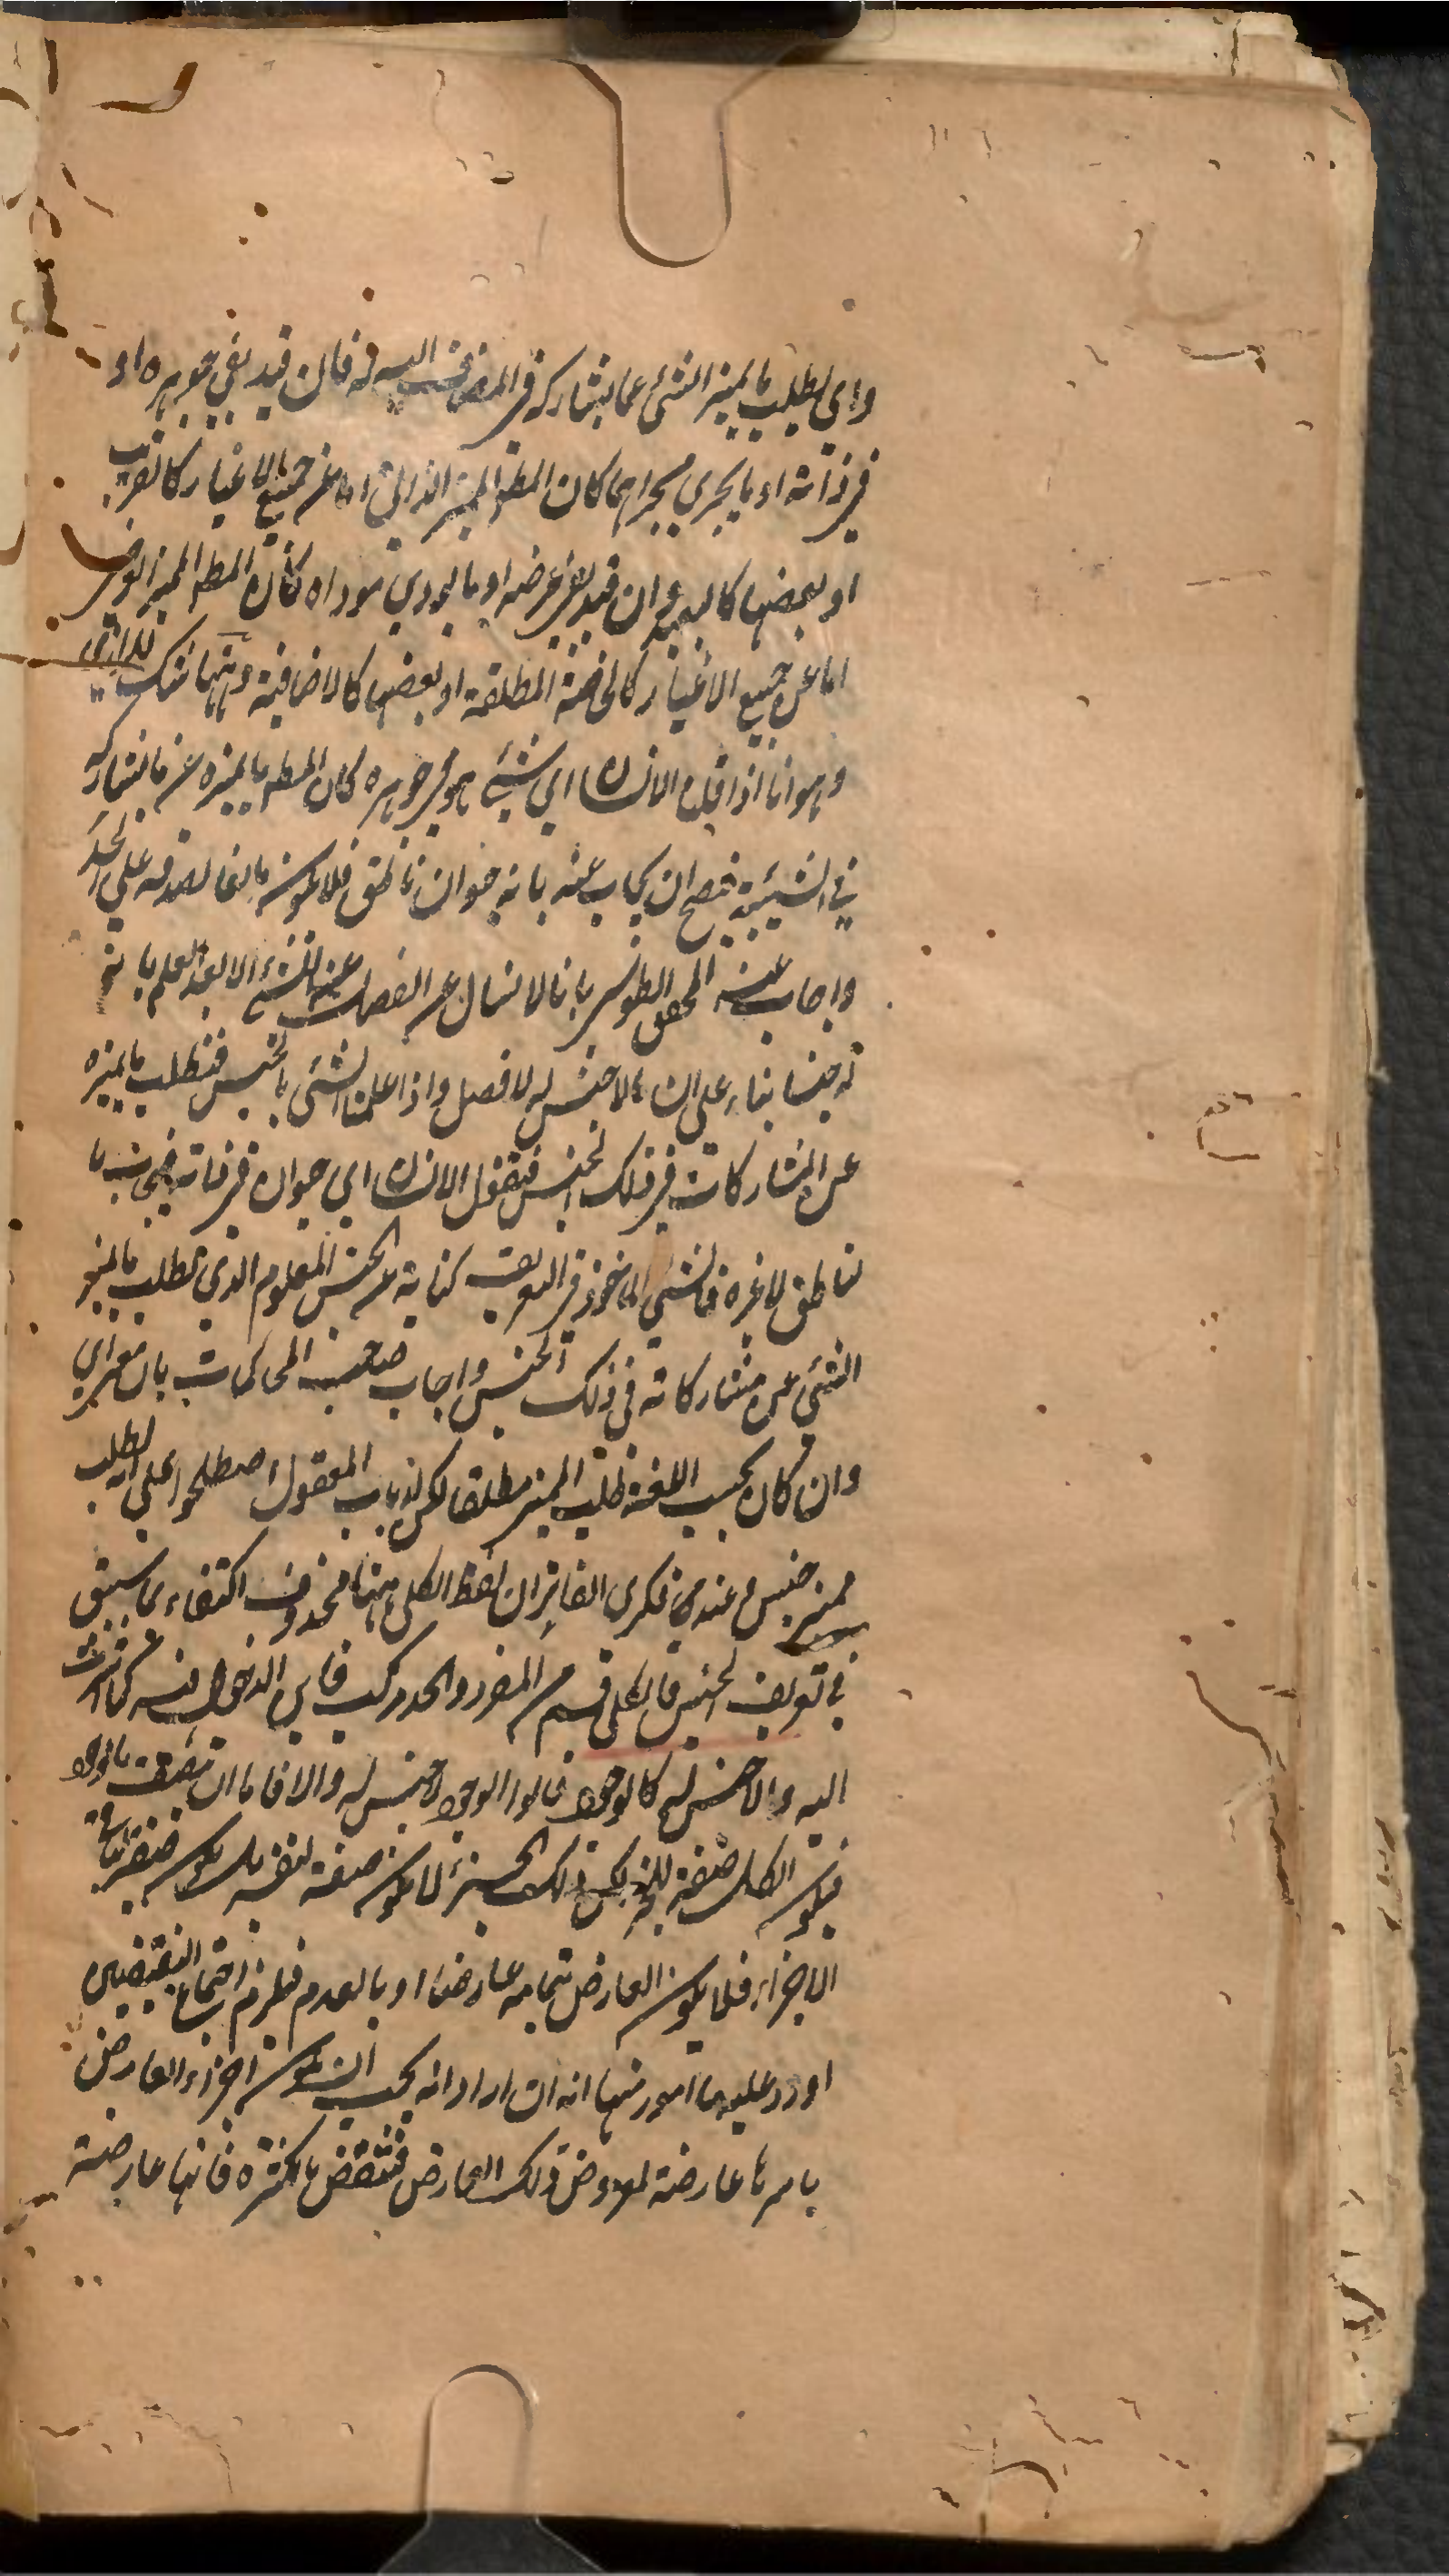 واي لطلب ما يميز الشئ عما يشاركه في المضاف اليه له فان قيد بفي جوهره او
في ذاته او ما يجري مجراهما كان المط المميز الذاتي اما عن جميع الاغيار كالقريب
او بعضها كالبعيد وان قيد بفي عرضه او ما يودي موداه كان المط المميز العرضي
اما عن جميع الاغيار كالخاصة المطلقة او بعضها كالاضافية وههنا شك للرازي
وهو انا اذا قلنا الانسان اي شئ هو في جوهره كان المط ما يميزه عن ما يشاركه
في الشيئية فصح ان يجاب عنه بانه حيوان ناطق فلا يكون مانعا لصدقه على الحد
واجاب عنه المحقق الطوسي بانا لا نسال عن الفصل عن الشئ الا بعد العلم بانه
له جنسا بناء على ان ما لا جنس له لا فصل له واذا علمنا الشئ بالجنس فنطلب ما يميزه
عن المشاركات في ذلك الجنس فنقول الانسان اي حيوان في ذاته فيجاب با
لناطق لا غيره فالشئ الماخوذ في التعريف كناية عن الجنس المعلوم الذي يطلب ما يميز
الشئ عن مشاركاته في ذلك الجنس واجاب صاحب المحاكمات بان معنى اي
وان كان بحسب اللغة طلب المميز مطلقا لكن ارباب المعقول اصطلحوا على انه لطلب
مميز جنس وعندي في فكري الفاتر ان لفظ الكلي ههنا محذوف اكتفاء بما سبق
في تعريف الجنس فالكلي قسم من المفرد والحد مركب فاين الدخول فيه كما اشرت
اليه وما لا جنس له كالوجود قالوا الوجود لا جنس له والا فاما ان يتصف بالوجود
فيكون الكل صفة للجزء لكن ذلك الجزء لا يكون صفة لنفسه بل يكون صفة لباقي
الاجزاء فلا يكون العارض بتمامه عارضا او بالعدم فيلزم اجتماع النقيضين
اورد عليه ما امور منها انه ان اراد انه يجب ان يكون اجزاء العارض
باسرها عارضة لمعروض ذلك العارض فينتقض بالكثرة فانها عارضة